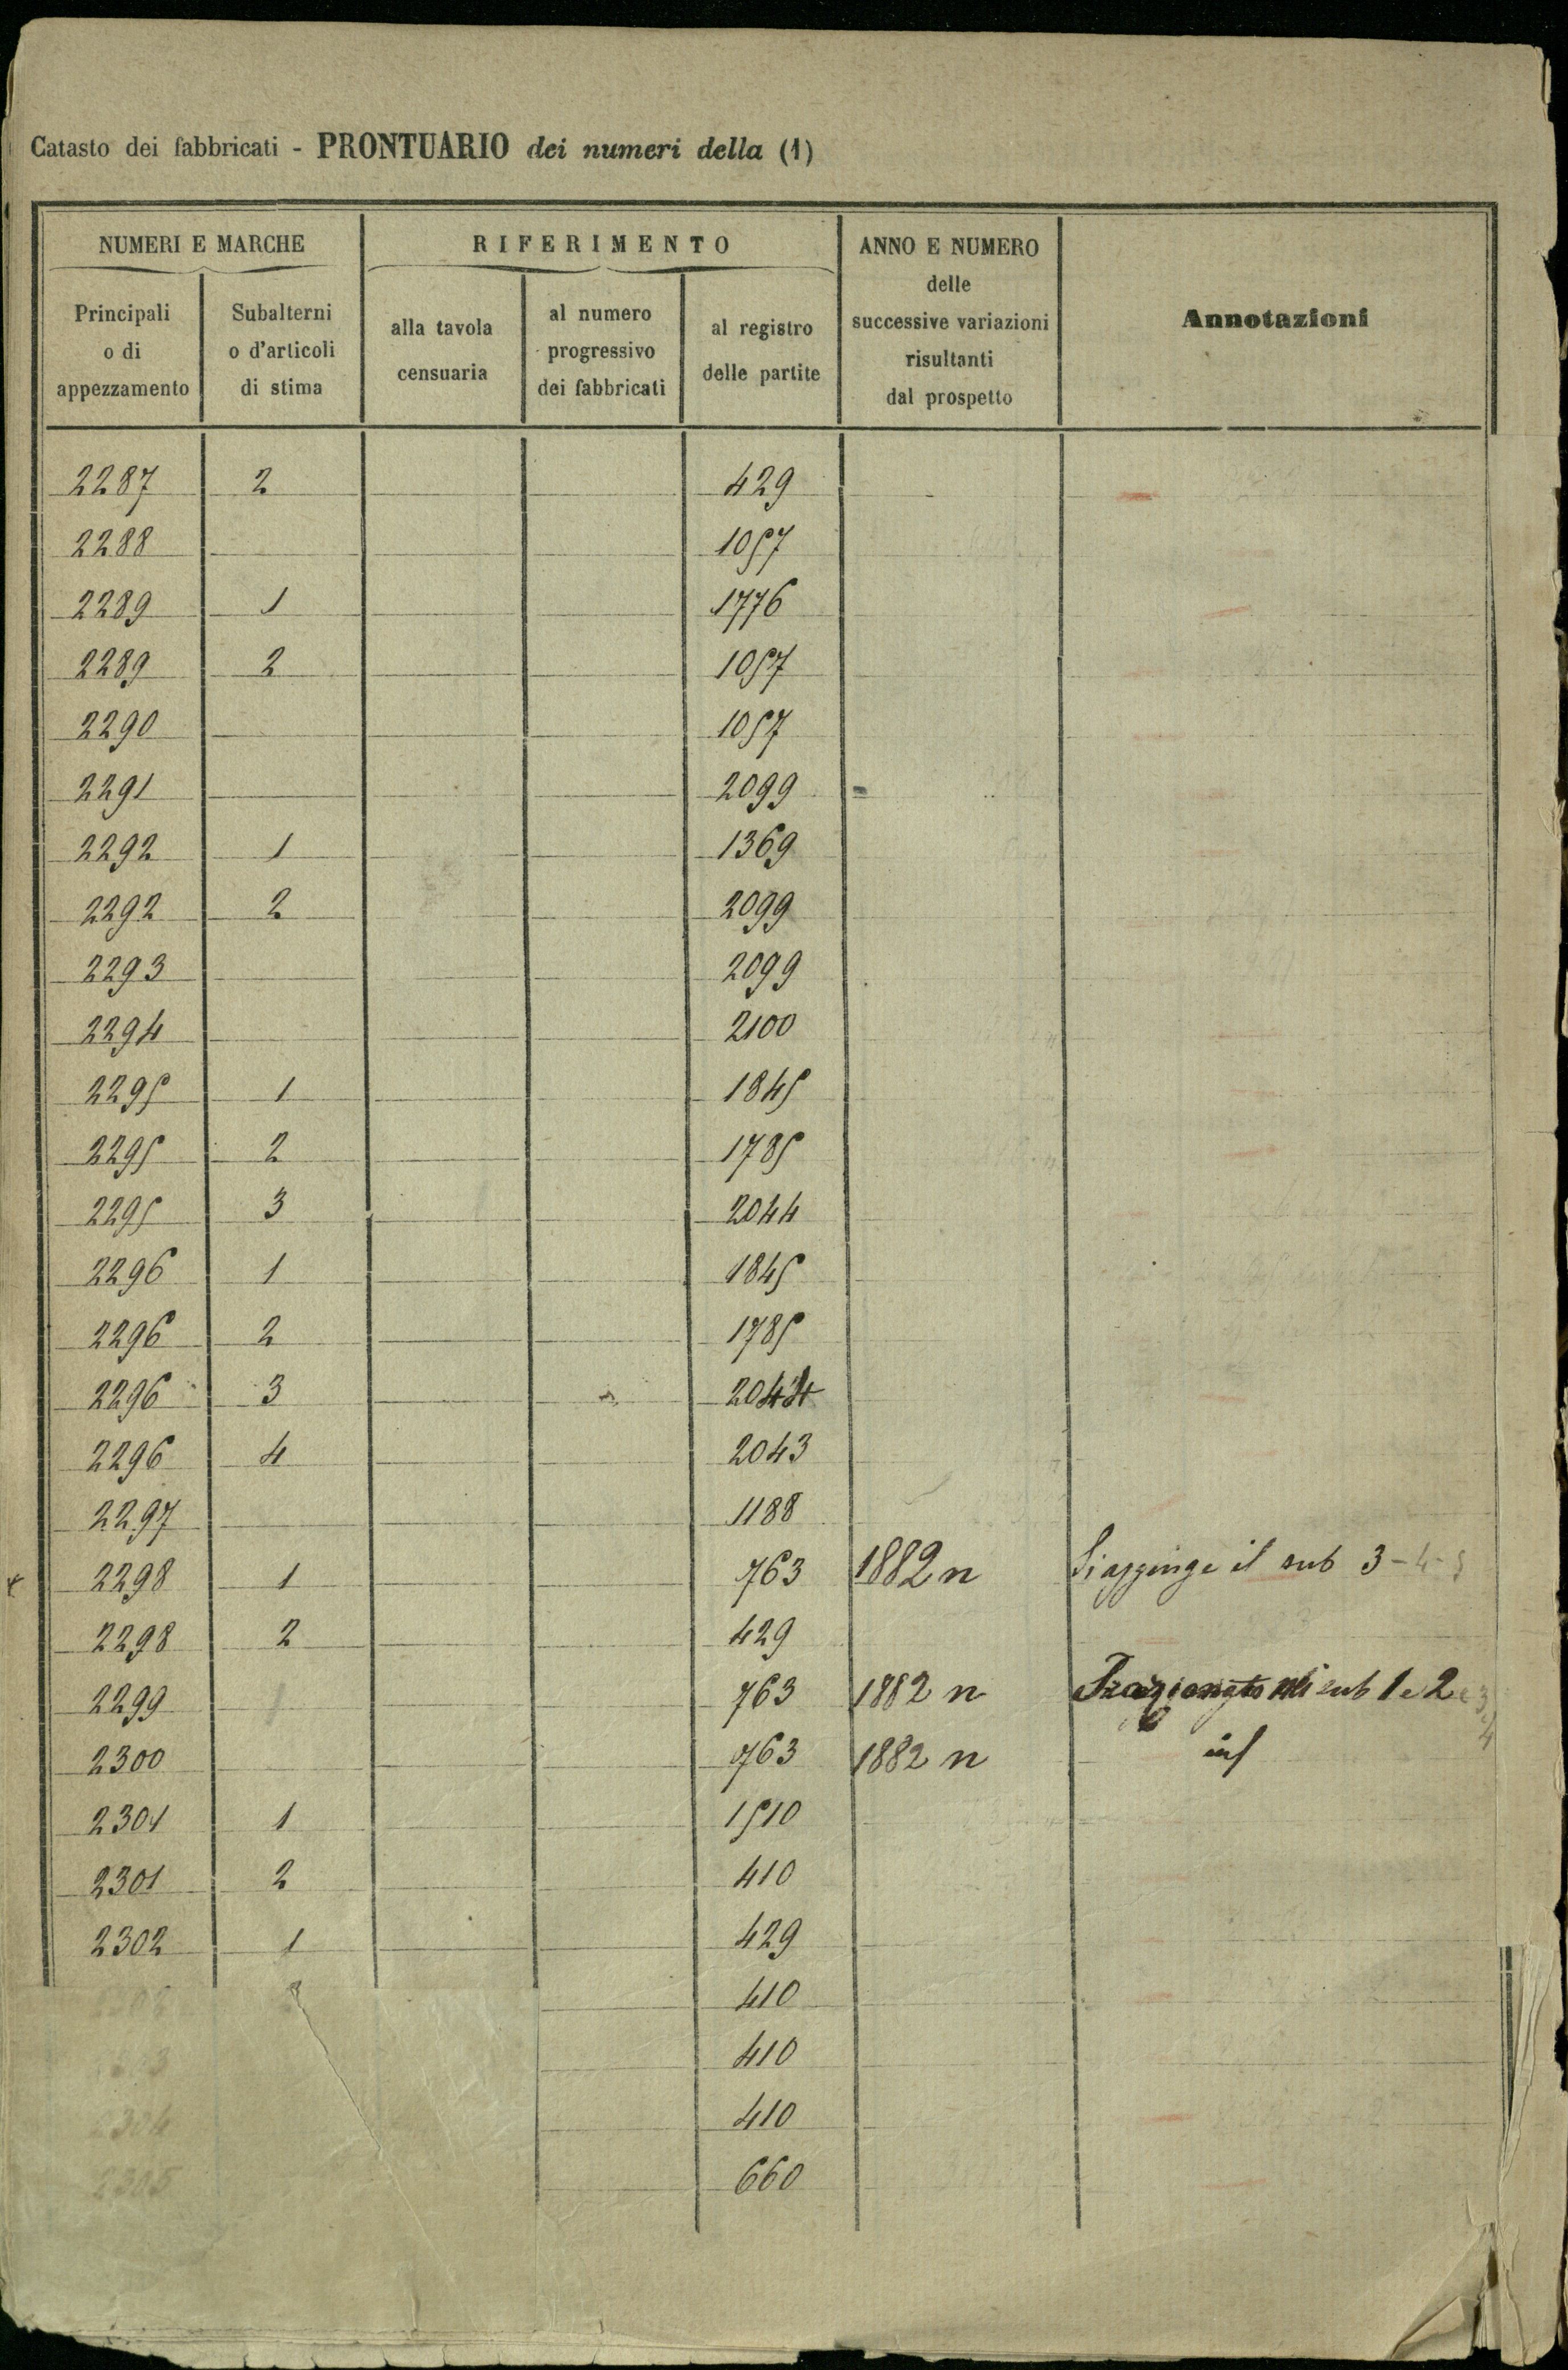 Catasto dei fabbricati - PRONTUARIO dei numeri della (1)
NUMERI E MARCHE
RIFERIMENTO
ANNO E NUMERO
delle
successive variazioni
risultanti
dal prospetto
Annotazioni
Principali
o di
appezzamento
Subalterni
o d'articoli
di stima
alla tavola
censuaria
al numero
progressivo
dei fabbricati
al registro
delle partite
2287 2 429
2288 1057
2289 1 1776
2289 2 1057
2290 1057
2291 2099
2292 1 1369
2292 2 2099
2293 2099
2294 2100
2295 1 1845
2295 2 1785
2295 3 2044
2296 1 1845
2296 2 1785
2296 3 2044
2296 4 2043
2297 1188
2298 1 763 1882 n Si aggiunge il sub 3-4-5
2298 2 429
2299 763 1882 n Frazionato sub 1 e 2 e 3
4
2300 763 1882 n
2301 1 1510
2301 2 410
2302 1 429
410
410
2304 410
2305 660